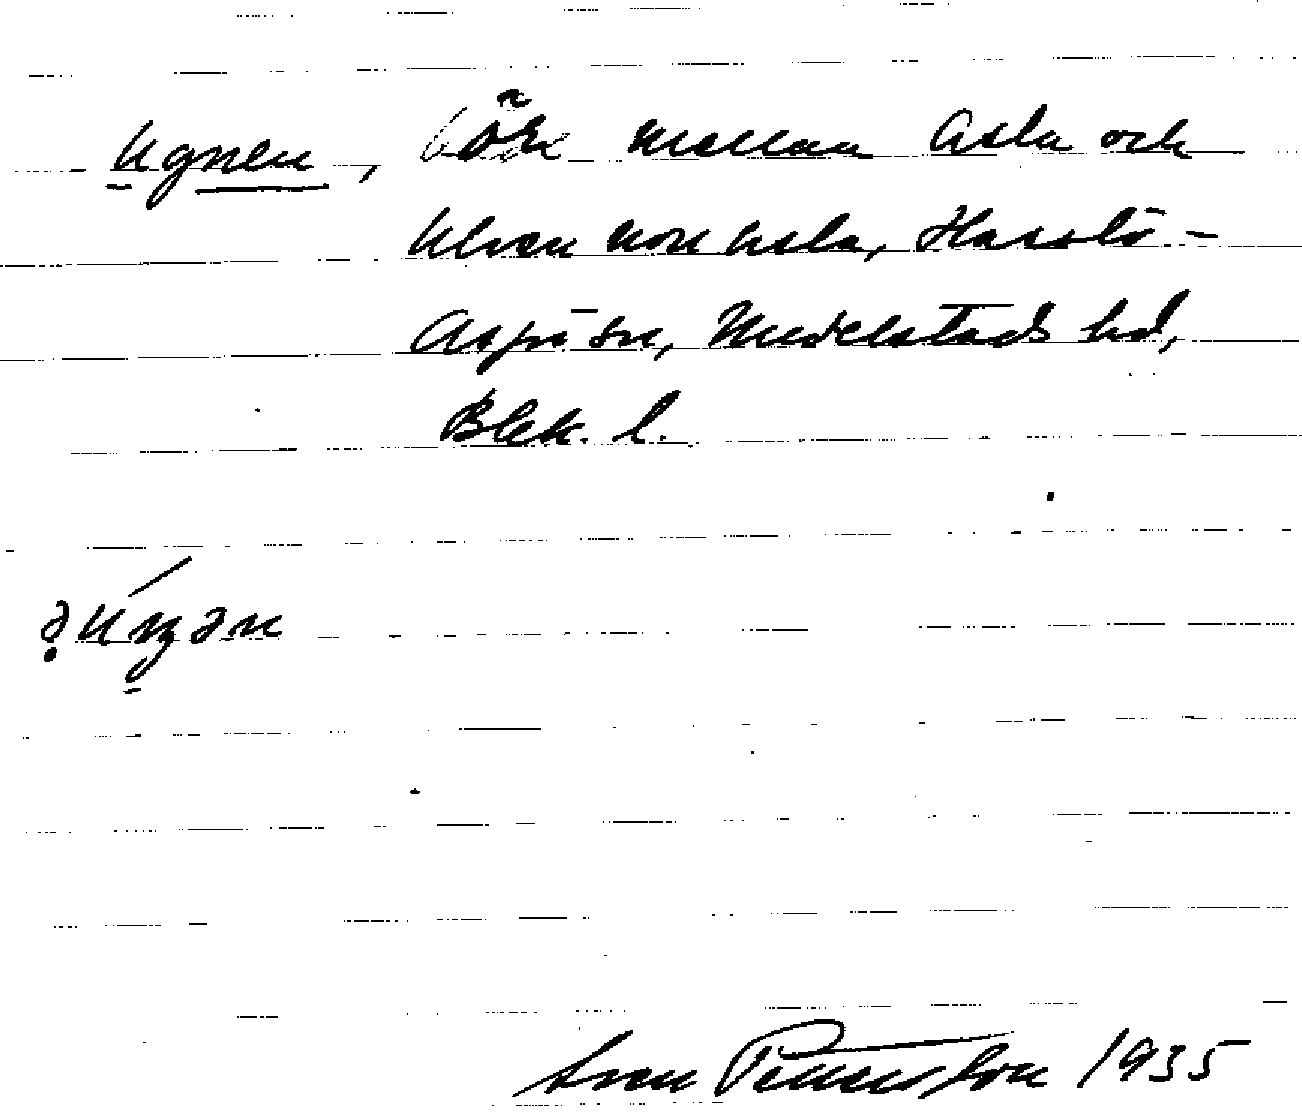 Ugnen, mellan Asla och
Ulven non Asla, Hasslö-
Aspö sn, Medelstads hd,
Blek. l.
Sven Pettersson 1935